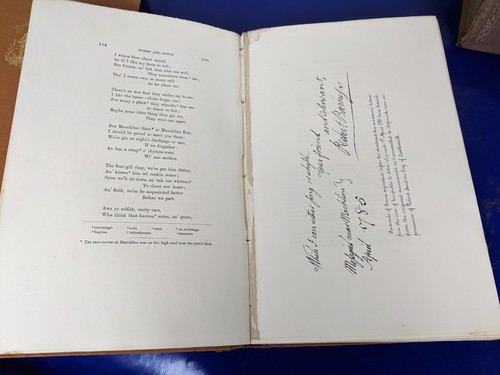 114 POEMS AND SONGS.
I winna blaw about mysel,
As ill I like my fauts to tell;
But friends, an' folk that wish me well,
They sometimes roose me;
Tho' I maun own, as mony still
As far abuse me.
There's ae wee faut they whiles lay to me,
I like the lasses—Gude forgie me!
For mony a plack they wheedle frae me
At dance or fair;
Maybe some ither thing they gie me,
They weel can spare.
But Mauchline Race* or Mauchline Fair,
I should be proud to meet you there:
We'se gie ae night's discharge to care,
If we forgather;
An' hae a swap o' rhymin-ware
Wi' ane anither.
The four-gill chap, we'se gar him clatter,
An' kirsen him wi' reekin water;
Syne we'll sit down an' tak our whitter,
To cheer our heart;
An' faith, we'se be acquainted better
Before we part.
Awa ye selfish, warly race,
Wha think that havins, sense, an' grace,
encourage. coin. meet. an exchange.
baptize. refreshment. manners.
* The race-course at Mauchline was on the high road near the poet's farm.
While I can either sing or whissle,
Your friend and servant,
Robert Burns
Mossgiel near Machline
April 1785